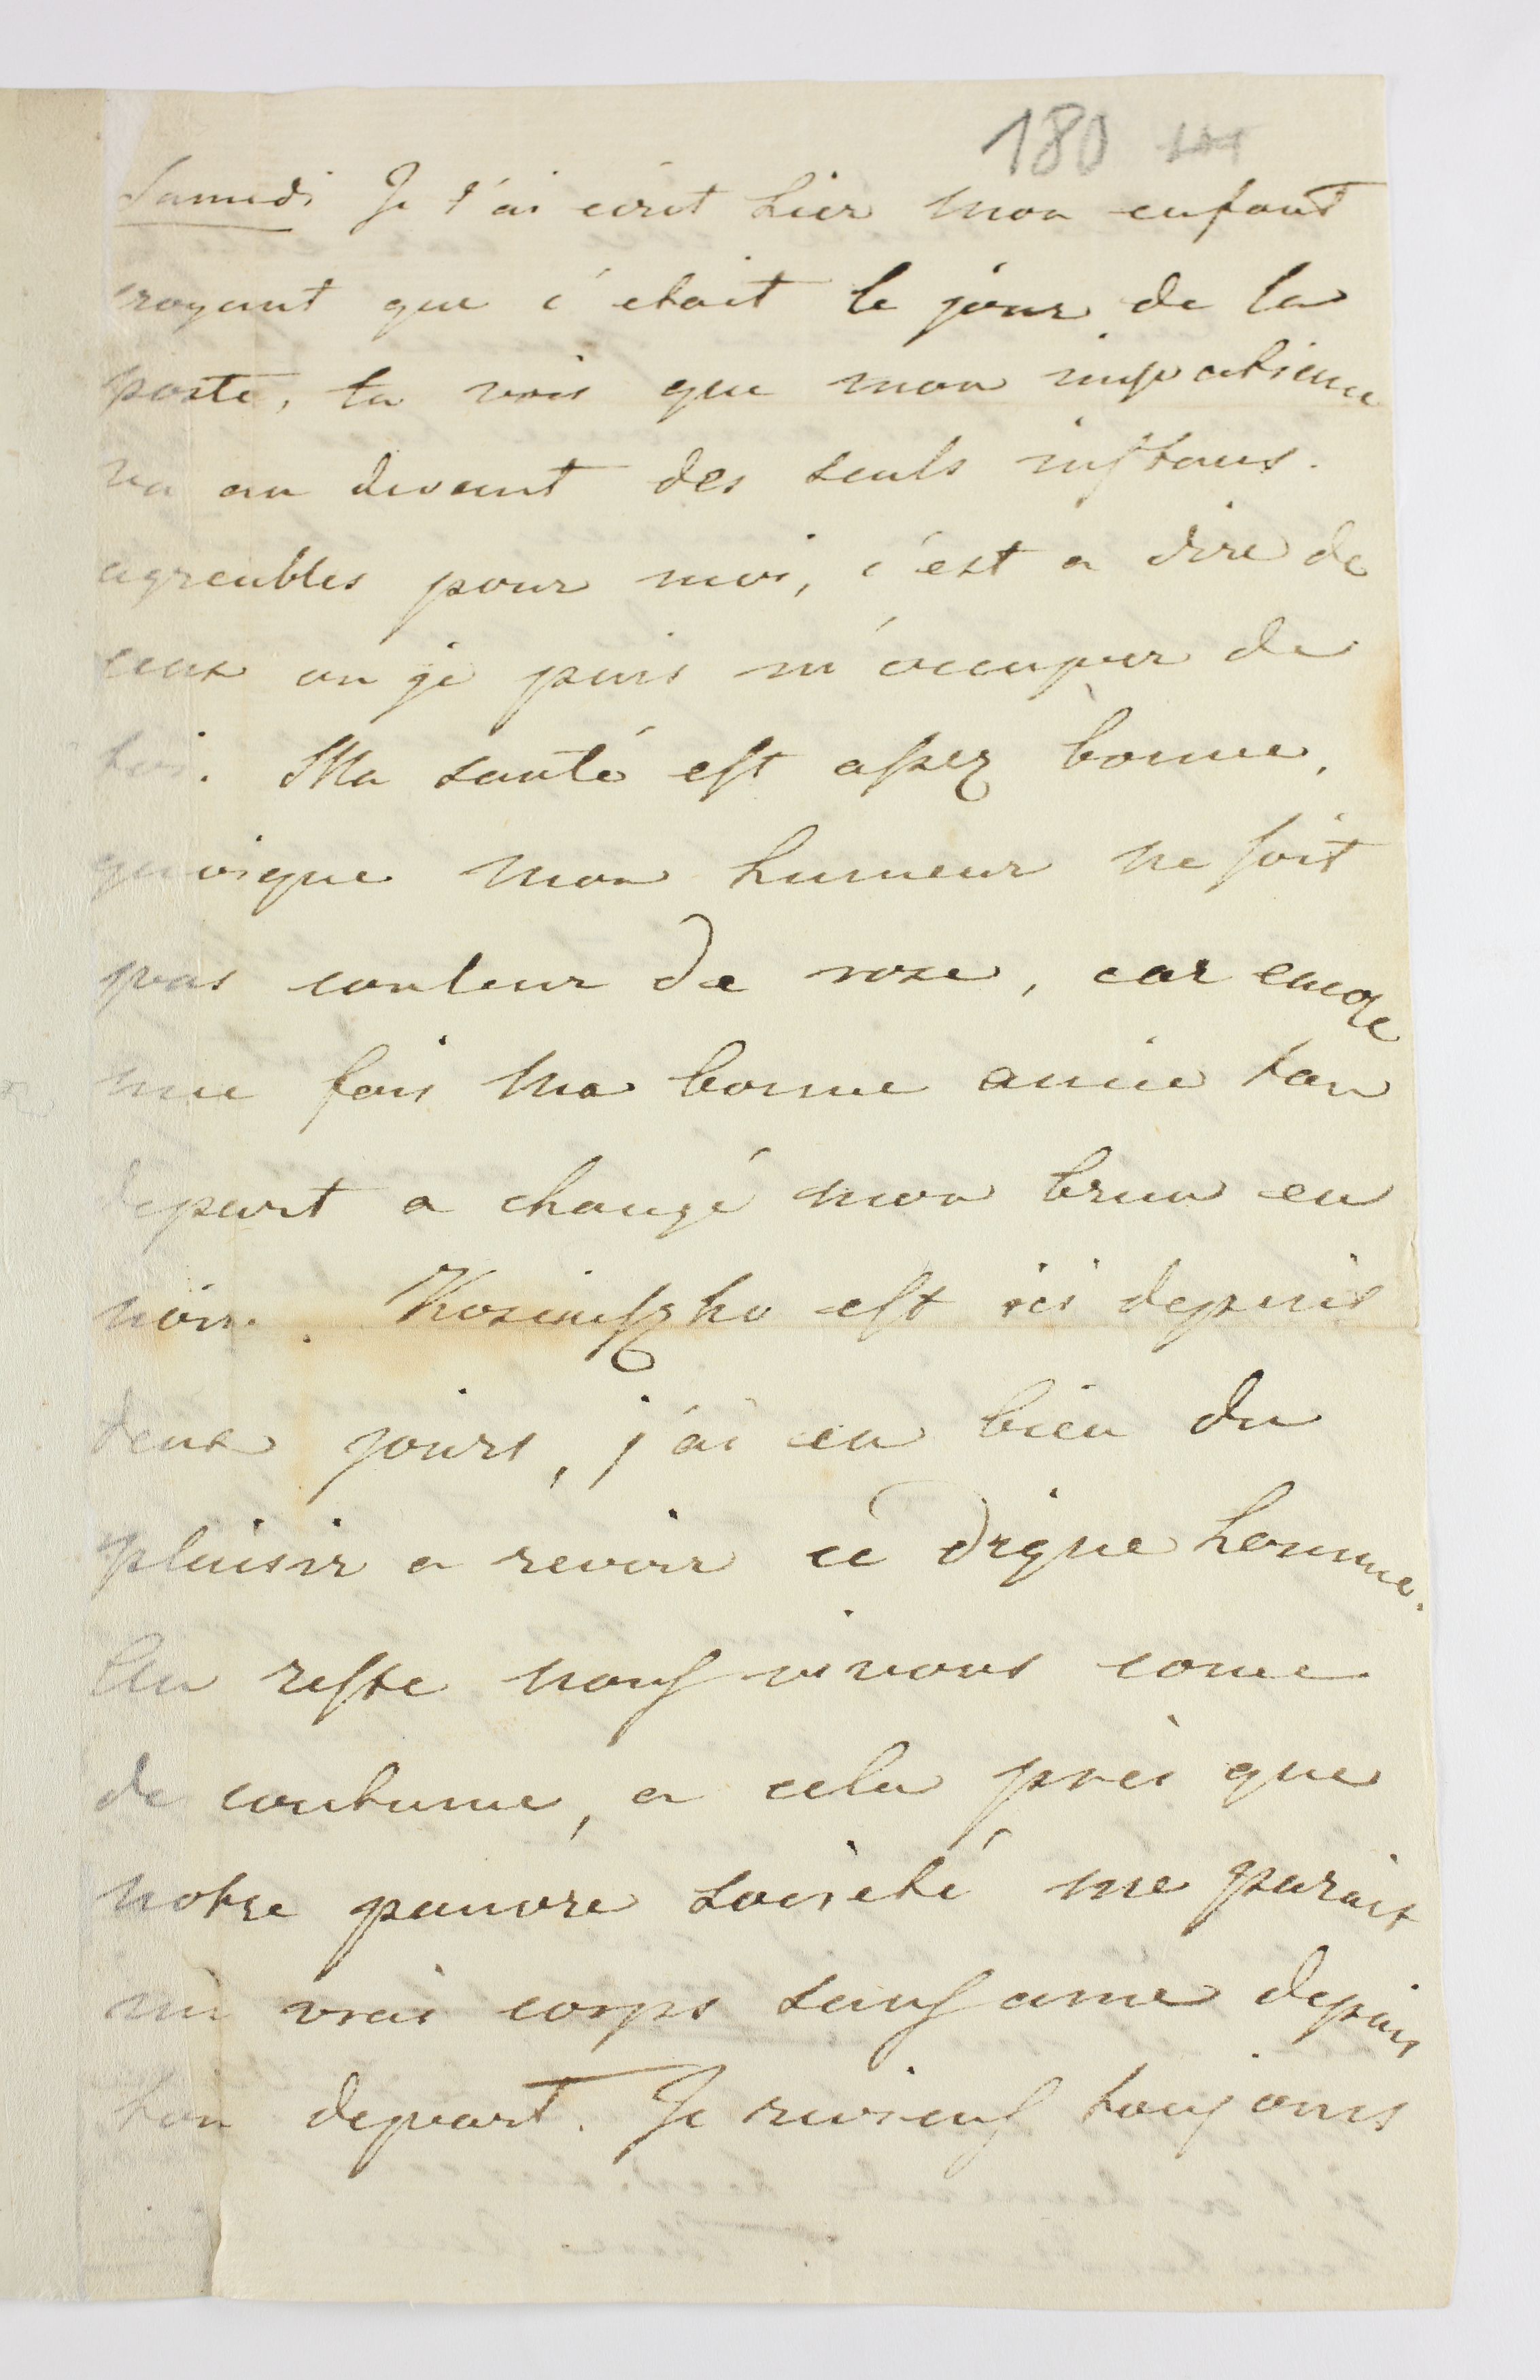 180
Samedi Je t'ai écrit hier mon enfant
croyant que c'etoit le jour de la
poste, tu vois que mon impatience
va au devant des seuls instans
agreables pour moi, c'est a dire de
ceux ou je puis m'occuper de
toi. Ma santé est assez bonne,
quoique mon humeur ne soit
pas couleur de rose, car encore
une fois ma bonne amie ton
depart a changé mon brun en
noir. Kosciuszko est ici depuis
deux jours, j'ai eu bien du
plaisir a revoir ce digne homme.
Au reste nous vivons come
de coutume, a cela près que
notre pauvre société me parait
un vrai corps sans ame depuis
ton depart. Je reviens toujours